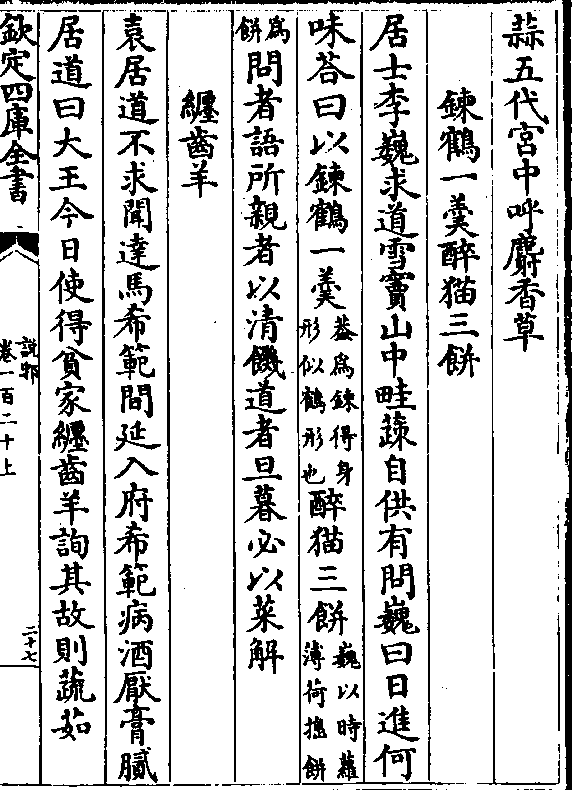 蒜五代宮中呼麝香草
鍊鶴一羮醉猫三餅
居士李巍求道雪竇山中畦蔬自供有問巍曰日進何
味荅曰以鍊鶴一羮葢為鍊得身形似鶴形也醉猫三餅巍以時蘿薄荷擣餅
為餅問者語所親者以清饑道者旦暮必以菜解
纒齒羊
袁居道不求聞達馬希範間延入府希範病酒厭膏膩
居道曰大王今日使得貧家纒齒羊詢其故則蔬茹
欽定四庫全書
說郛
卷一百二十上
二十七